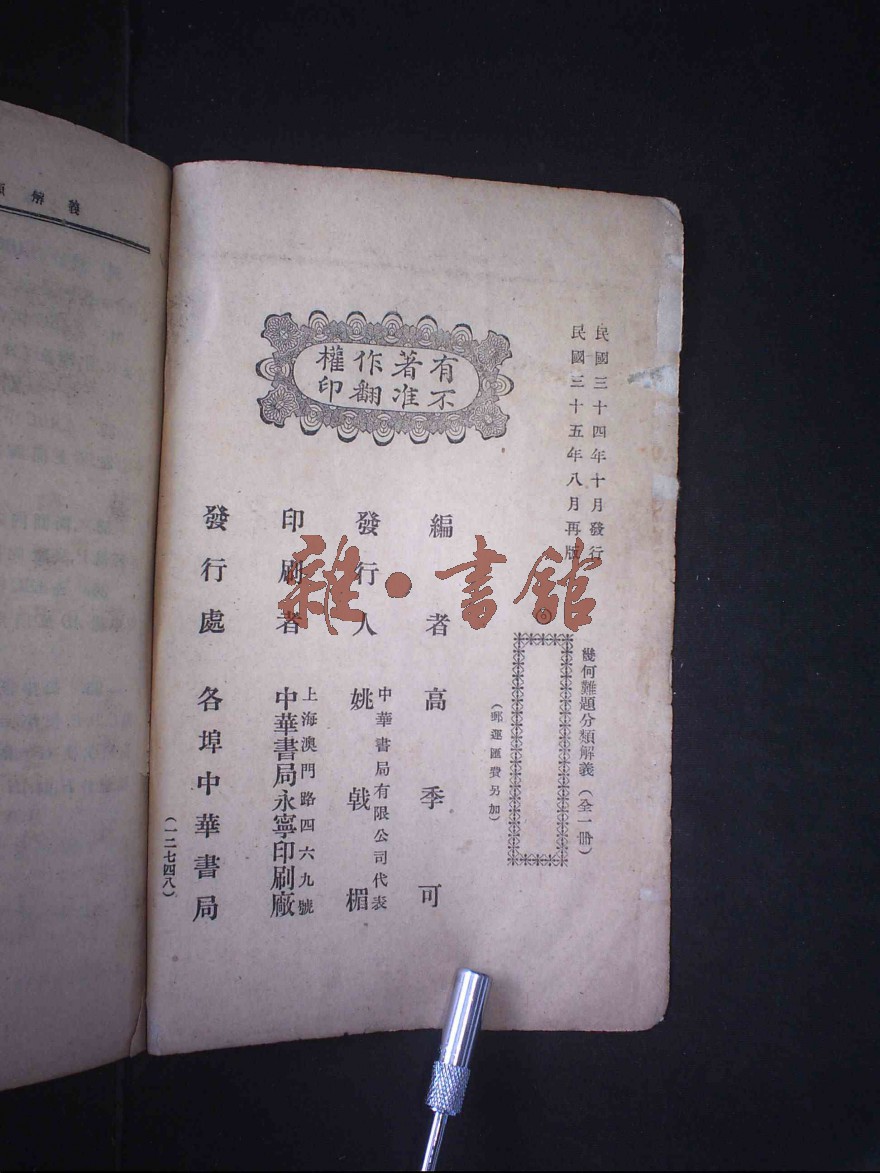 民國三十四年十月發行
民國三十五年八月再版
幾何難題分類解義（全一册）
（郵運匯費另加）
有著作權
不准翻印
編者 高季可
發行人 姚戟楣
中華書局有限公司代表
印刷者 中華書局永寧印刷廠
上海澳門路四六九號
發行處 各埠中華書局
（一二七四八）
雜·書館
解義